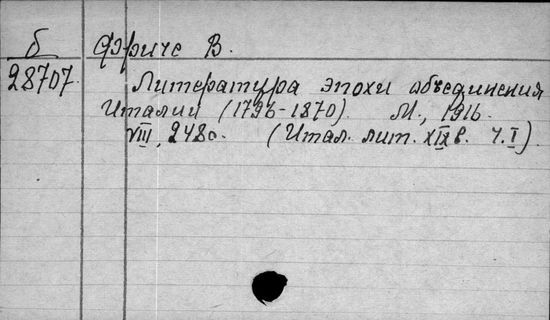 б Фриче В.
28707
Литература эпохи объединения
Италии (1796-1870). М., 1916.
VIII, 248с. (Итал. лит. XIXв. ч.I).